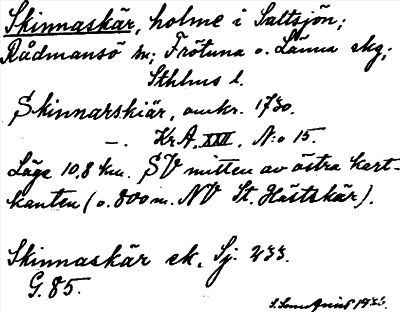 Skinnaskär, holme i Saltsjön;
Rådmansö sn; Frötuna o. Länna skg;
Sthlms l.
Skinnarskiär, omkr. 1730.
—. Kr.A. XXII, N:o 15.
Läge 10,8 km. SV mitten av östra kart-
kanten (o. 800 m. NV St. Hästskär).
Skinnaskär ek. Sj. 233.
G. 85.
1933.